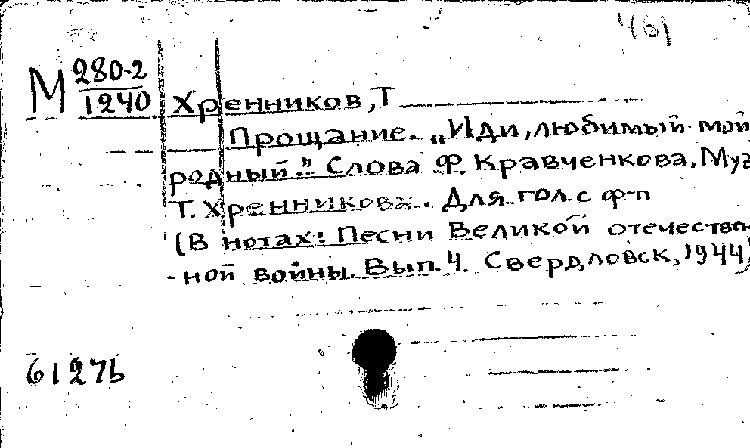 М 280-2
1240
Хренников, Т
Прощание. „Иди, любимый мой
родный." Слова Ф. Кравченкова, Муз
Т. Хренникова. Для гол. с ф-п
(В нотах: Песни Великой отечествен
-ной войны. Вып. 4. Свердловск, 1944)